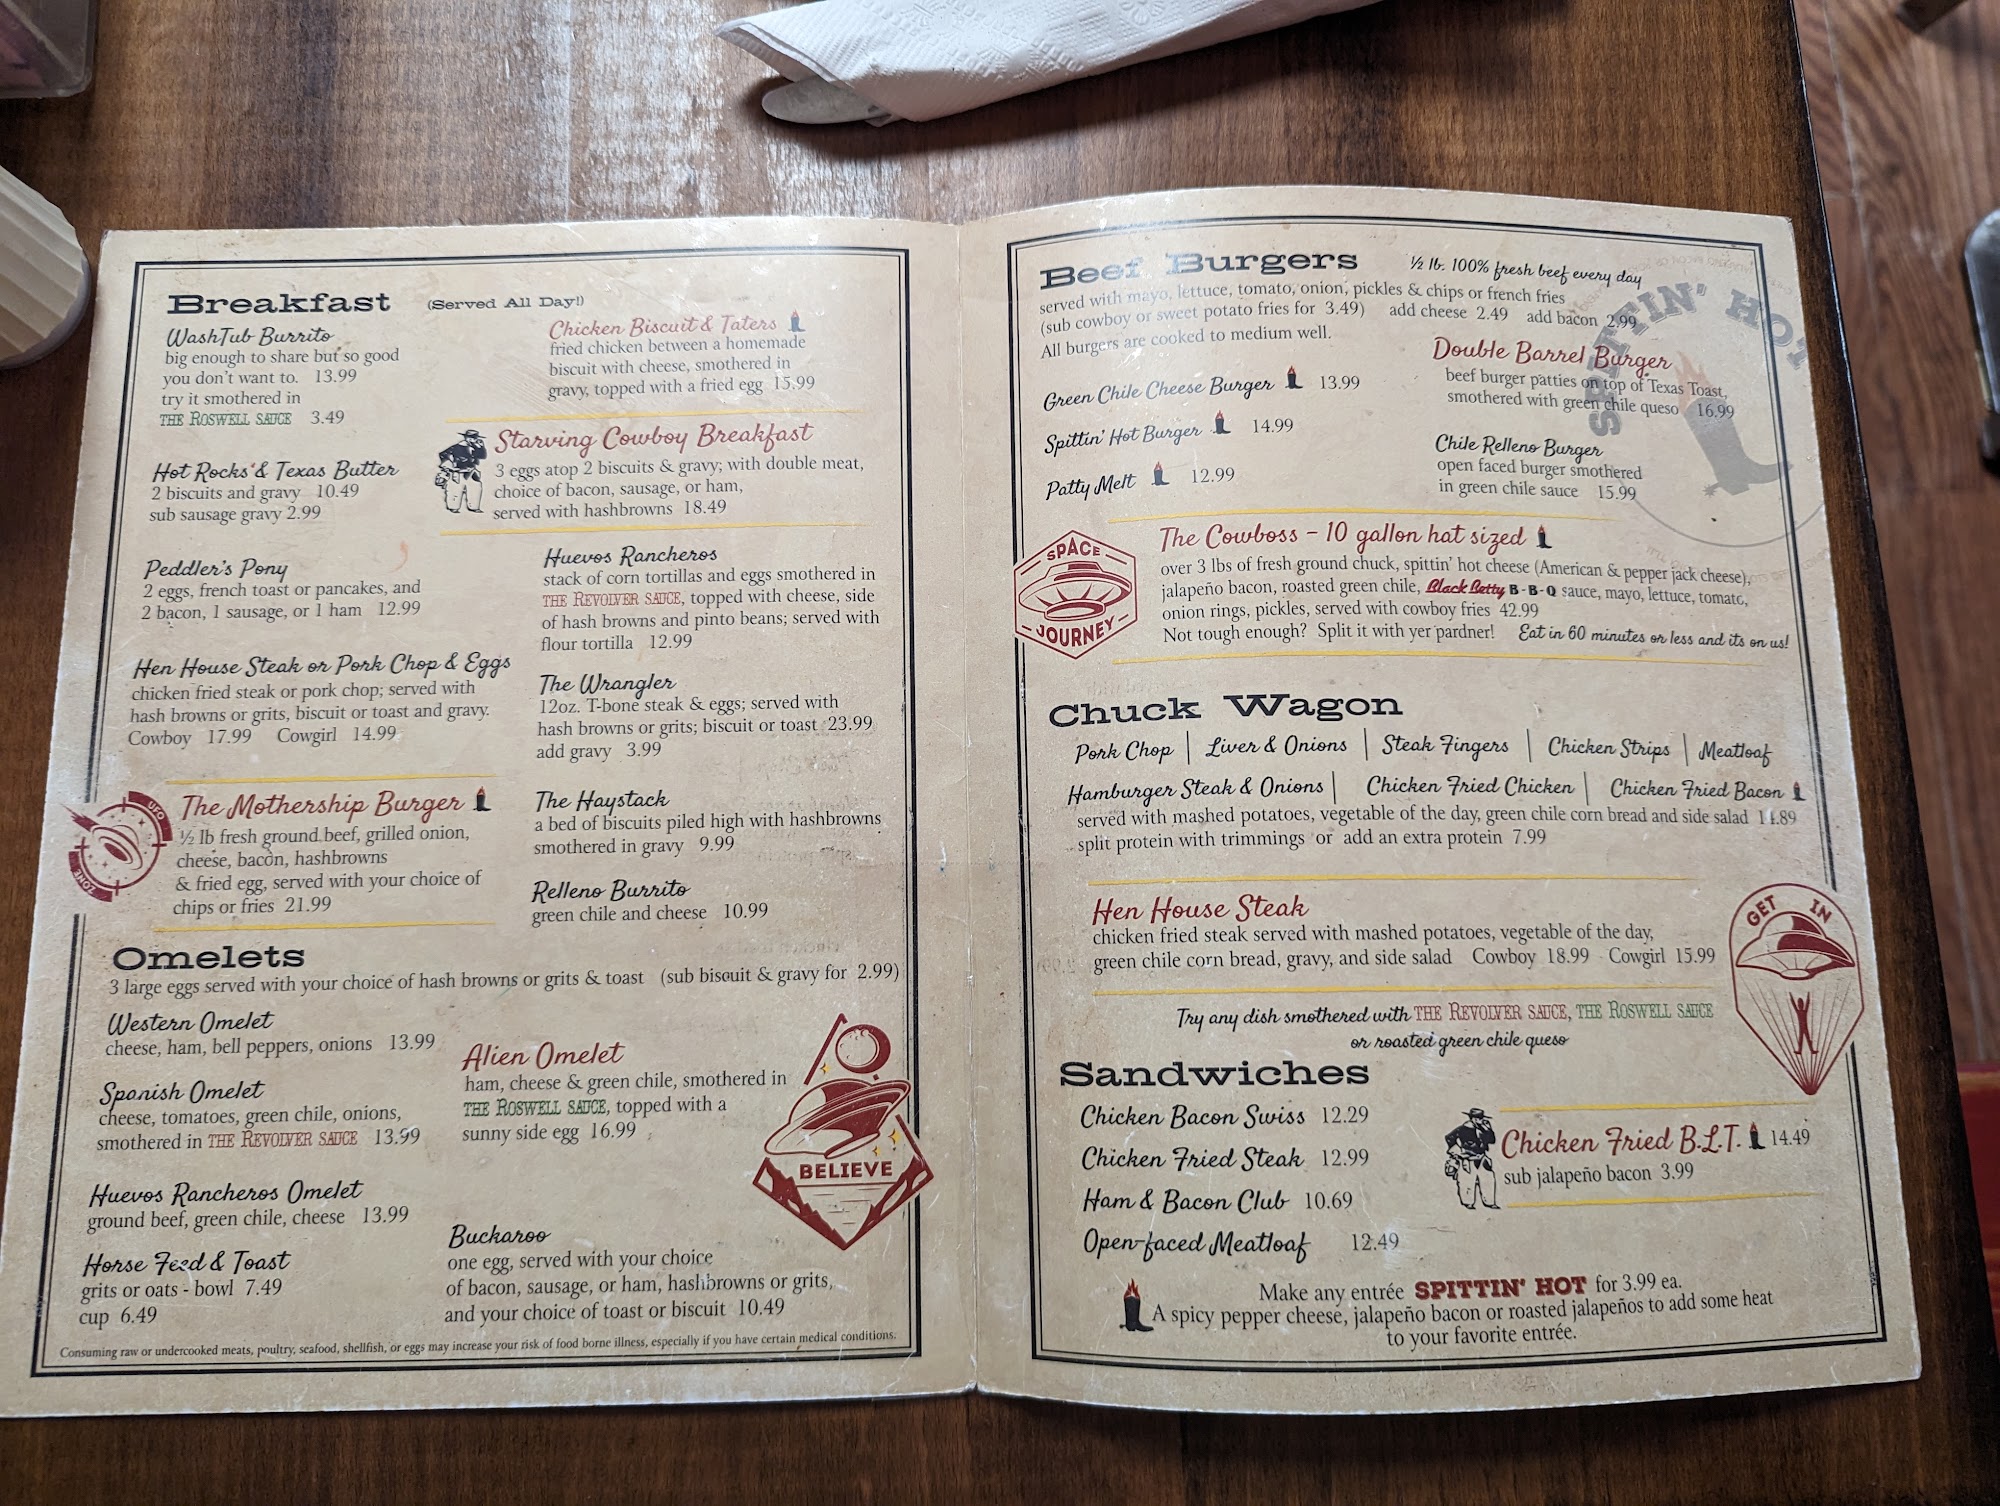 Breakfast (Served All Day!)
WashTub Burrito
big enough to share but so good
you don't want to. 13.99
try it smothered in
THE ROSWELL SAUCE 3.49
Hot Rocks & Texas Butter
2 biscuits and gravy 10.49
sub sausage gravy 2.99
Peddler's Pony
2 eggs, french toast or pancakes, and
2 bacon, 1 sausage, or 1 ham 12.99
Hen House Steak or Pork Chop & Eggs
chicken fried steak or pork chop; served with
hash browns or grits, biscuit or toast and gravy.
Cowboy 17.99 Cowgirl 14.99
The Mothership Burger
½ lb fresh ground beef, grilled onion,
cheese, bacon, hashbrowns
& fried egg, served with your choice of
chips or fries 21.99
UFO
ZONE
Chicken Biscuit & Taters
fried chicken between a homemade
biscuit with cheese, smothered in
gravy, topped with a fried egg 15.99
Starving Cowboy Breakfast
3 eggs atop 2 biscuits & gravy; with double meat,
choice of bacon, sausage, or ham,
served with hashbrowns 18.49
Huevos Rancheros
stack of corn tortillas and eggs smothered in
THE REVOLVER SAUCE, topped with cheese, side
of hash browns and pinto beans; served with
flour tortilla 12.99
The Wrangler
12oz. T-bone steak & eggs; served with
hash browns or grits; biscuit or toast 23.99
add gravy 3.99
The Haystack
a bed of biscuits piled high with hashbrowns
smothered in gravy 9.99
Relleno Burrito
green chile and cheese 10.99
Omelets
3 large eggs served with your choice of hash browns or grits & toast (sub biscuit & gravy for 2.99)
Western Omelet
cheese, ham, bell peppers, onions 13.99
Spanish Omelet
cheese, tomatoes, green chile, onions,
smothered in THE REVOLVER SAUCE 13.99
Huevos Rancheros Omelet
ground beef, green chile, cheese 13.99
Horse Feed & Toast
grits or oats - bowl 7.49
cup 6.49
Alien Omelet
ham, cheese & green chile, smothered in
THE ROSWELL SAUCE, topped with a
sunny side egg 16.99
BELIEVE
Buckaroo
one egg, served with your choice
of bacon, sausage, or ham, hashbrowns or grits,
and your choice of toast or biscuit 10.49
Consuming raw or undercooked meats, poultry, seafood, shellfish, or eggs may increase your risk of food borne illness, especially if you have certain medical conditions.
Beef Burgers ½ lb. 100% fresh beef every day
served with mayo, lettuce, tomato, onion, pickles & chips or french fries
(sub cowboy or sweet potato fries for 3.49) add cheese 2.49 add bacon 2.99
All burgers are cooked to medium well.
SPITTIN' HOT
Green Chile Cheese Burger 13.99
Spittin' Hot Burger 14.99
Patty Melt 12.99
Double Barrel Burger
beef burger patties on top of Texas Toast,
smothered with green chile queso 16.99
Chile Relleno Burger
open faced burger smothered
in green chile sauce 15.99
SPACE
JOURNEY
The Cowboss - 10 gallon hat sized
over 3 lbs of fresh ground chuck, spittin' hot cheese (American & pepper jack cheese),
jalapeño bacon, roasted green chile, Black Betty B-B-Q sauce, mayo, lettuce, tomato,
onion rings, pickles, served with cowboy fries 42.99
Not tough enough? Split it with yer pardner! Eat in 60 minutes or less and its on us!
Chuck Wagon
Pork Chop | Liver & Onions | Steak Fingers | Chicken Strips | Meatloaf
Hamburger Steak & Onions | Chicken Fried Chicken | Chicken Fried Bacon
served with mashed potatoes, vegetable of the day, green chile corn bread and side salad
split protein with trimmings or add an extra protein 7.99
Hen House Steak
chicken fried steak served with mashed potatoes, vegetable of the day,
green chile corn bread, gravy, and side salad Cowboy 18.99 Cowgirl 15.99
GET IN
Try any dish smothered with THE REVOLVER SAUCE, THE ROSWELL SAUCE
or roasted green chile queso
Sandwiches
Chicken Bacon Swiss 12.29
Chicken Fried Steak 12.99
Ham & Bacon Club 10.69
Open-faced Meatloaf 12.49
Chicken Fried B.L.T. 14.49
sub jalapeño bacon 3.99
Make any entrée SPITTIN' HOT for 3.99 ea.
A spicy pepper cheese, jalapeño bacon or roasted jalapeños to add some heat
to your favorite entrée.